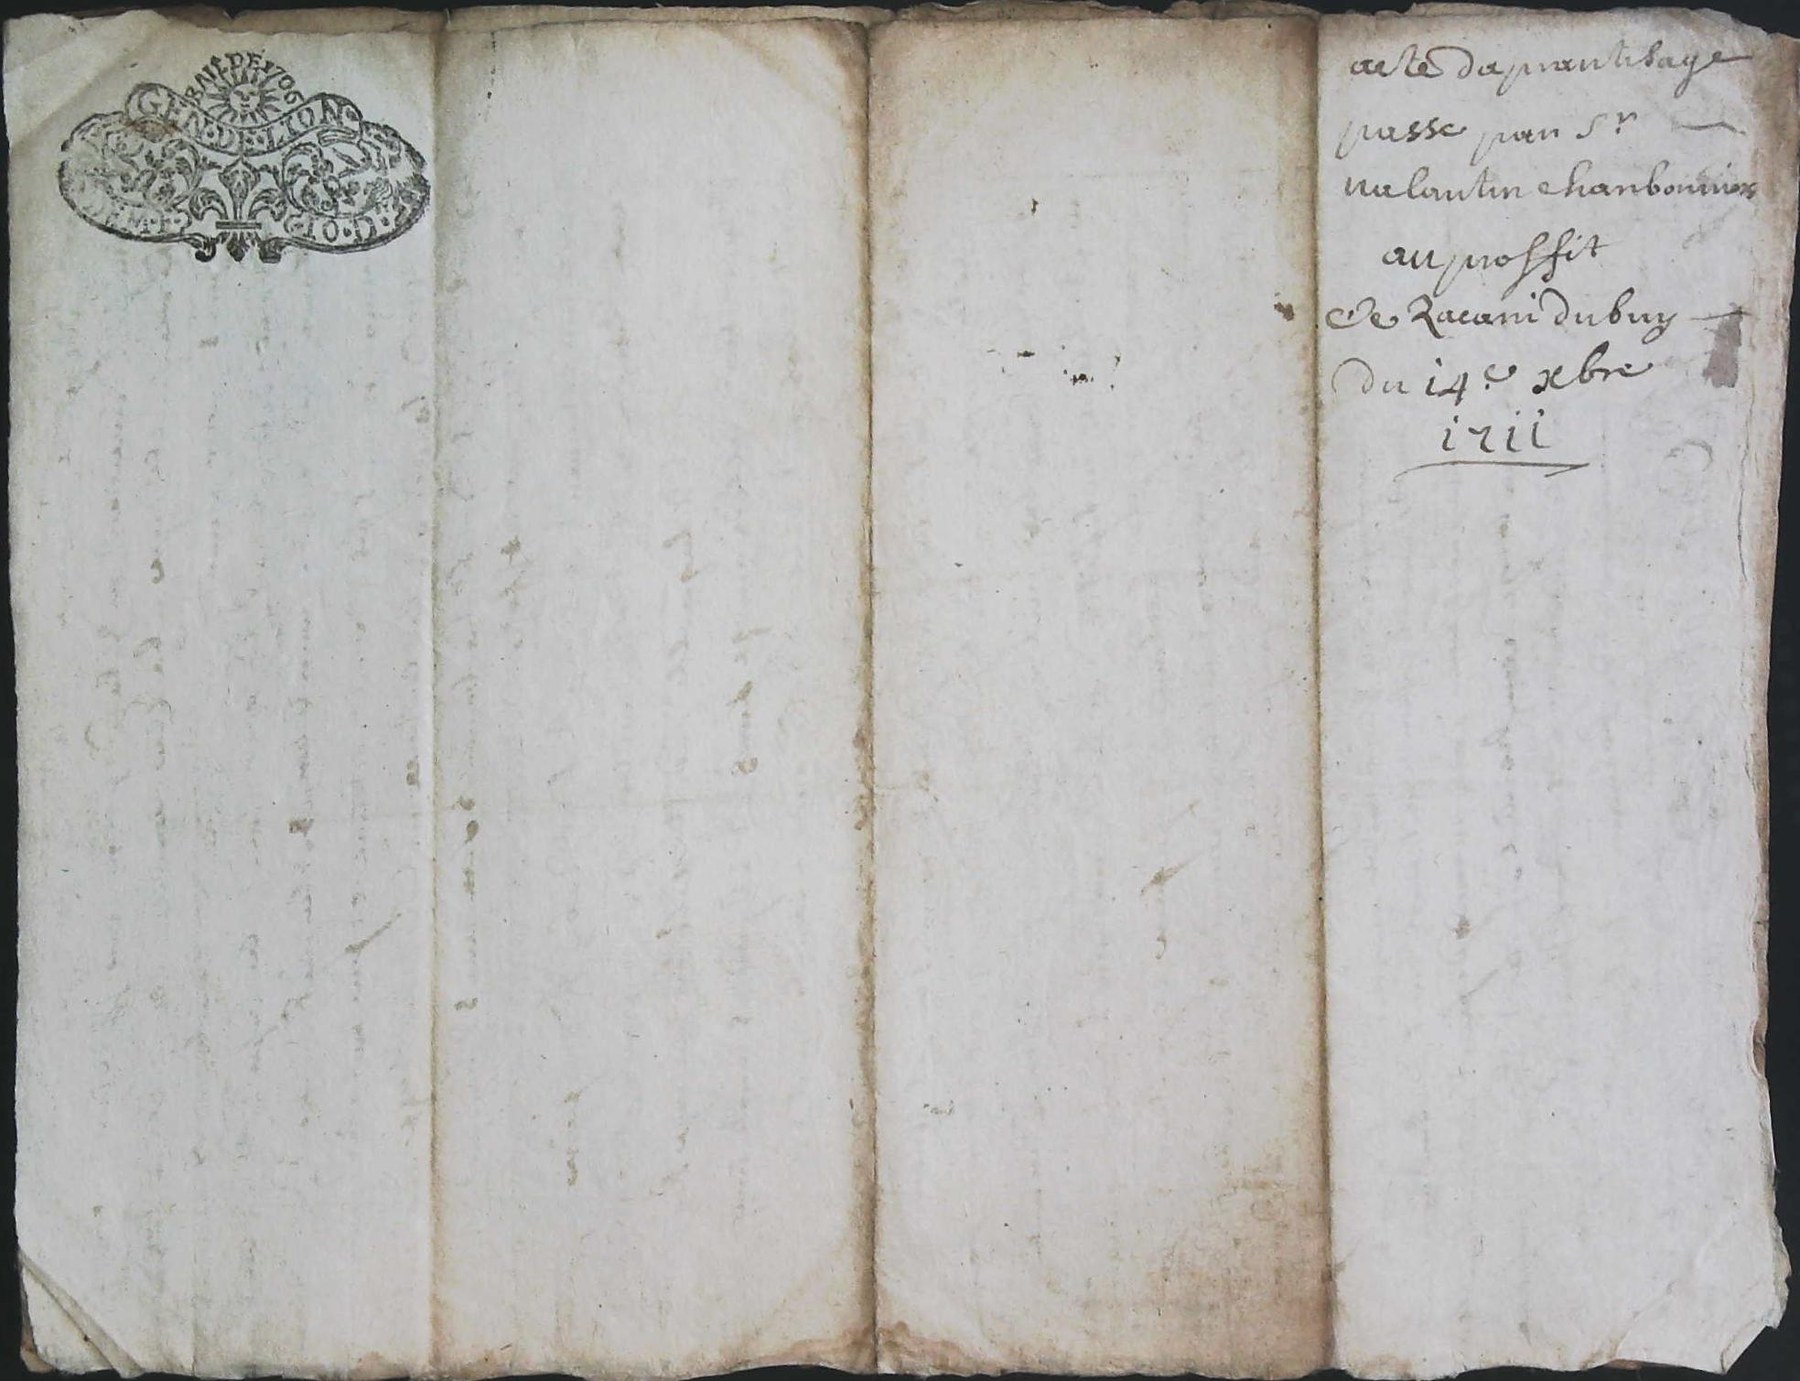 BAIL DE 1706
GEN·DE·LION·
acte daprantisage
passe par Sr
valantin charbonnier
au proffit
de Zacarie dubuy
du 14e xbre
1711